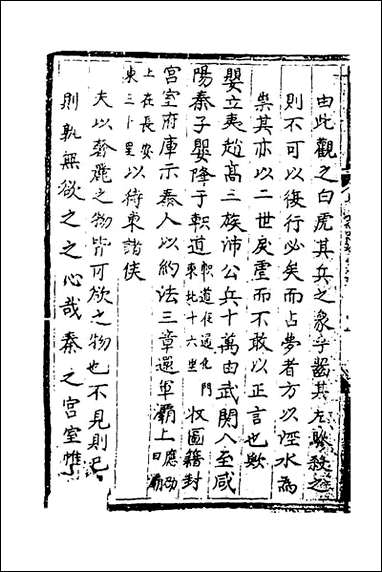 由此觀之白虎其兵之象乎齧其左驂殺之
則不可以復行必矣而占夢者方以涇水為
祟其亦以二世戾虐而不敢以正言也歟
嬰立夷趙高三族沛公兵十萬由武関入至咸
陽秦子嬰降于軹道軹道在通化門東北十六里收圖籍封
宮室府庫示秦人以約法三章還軍霸上應劭曰霸
上在長安東三十里以待東諸侯
夫以奢麗之物皆可欲之物也不見則已
則孰無欲之之心哉秦之宮室惟